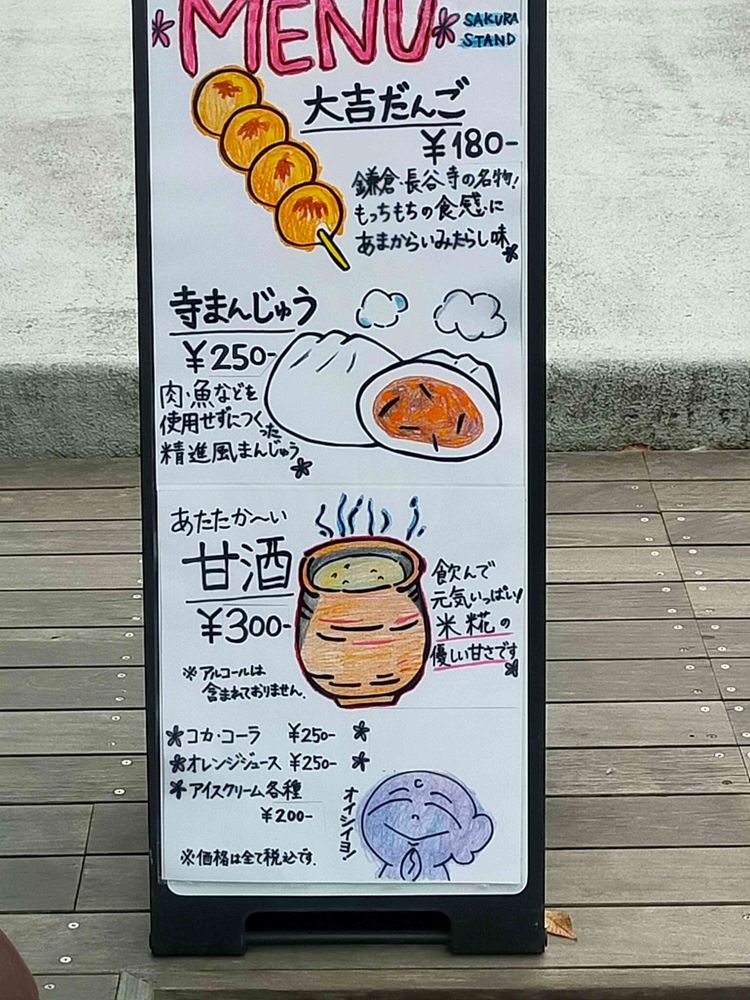 MENU
SAKURA
STAND
大吉だんご
¥180-
鎌倉・長谷寺の名物!
もっちもちの食感に
あまからいみたらし味
寺まんじゅう
¥250-
肉・魚などを
使用せずにつくった
精進風まんじゅう
あたたか〜い
甘酒
¥300-
飲んで
元気いっぱい!
米糀の
優しい甘さです
※アルコールは
含まれておりません.
コカ・コーラ ¥250-
オレンジジュース ¥250-
アイスクリーム各種
¥200-
オイシイヨ!
※価格は全て税込です.